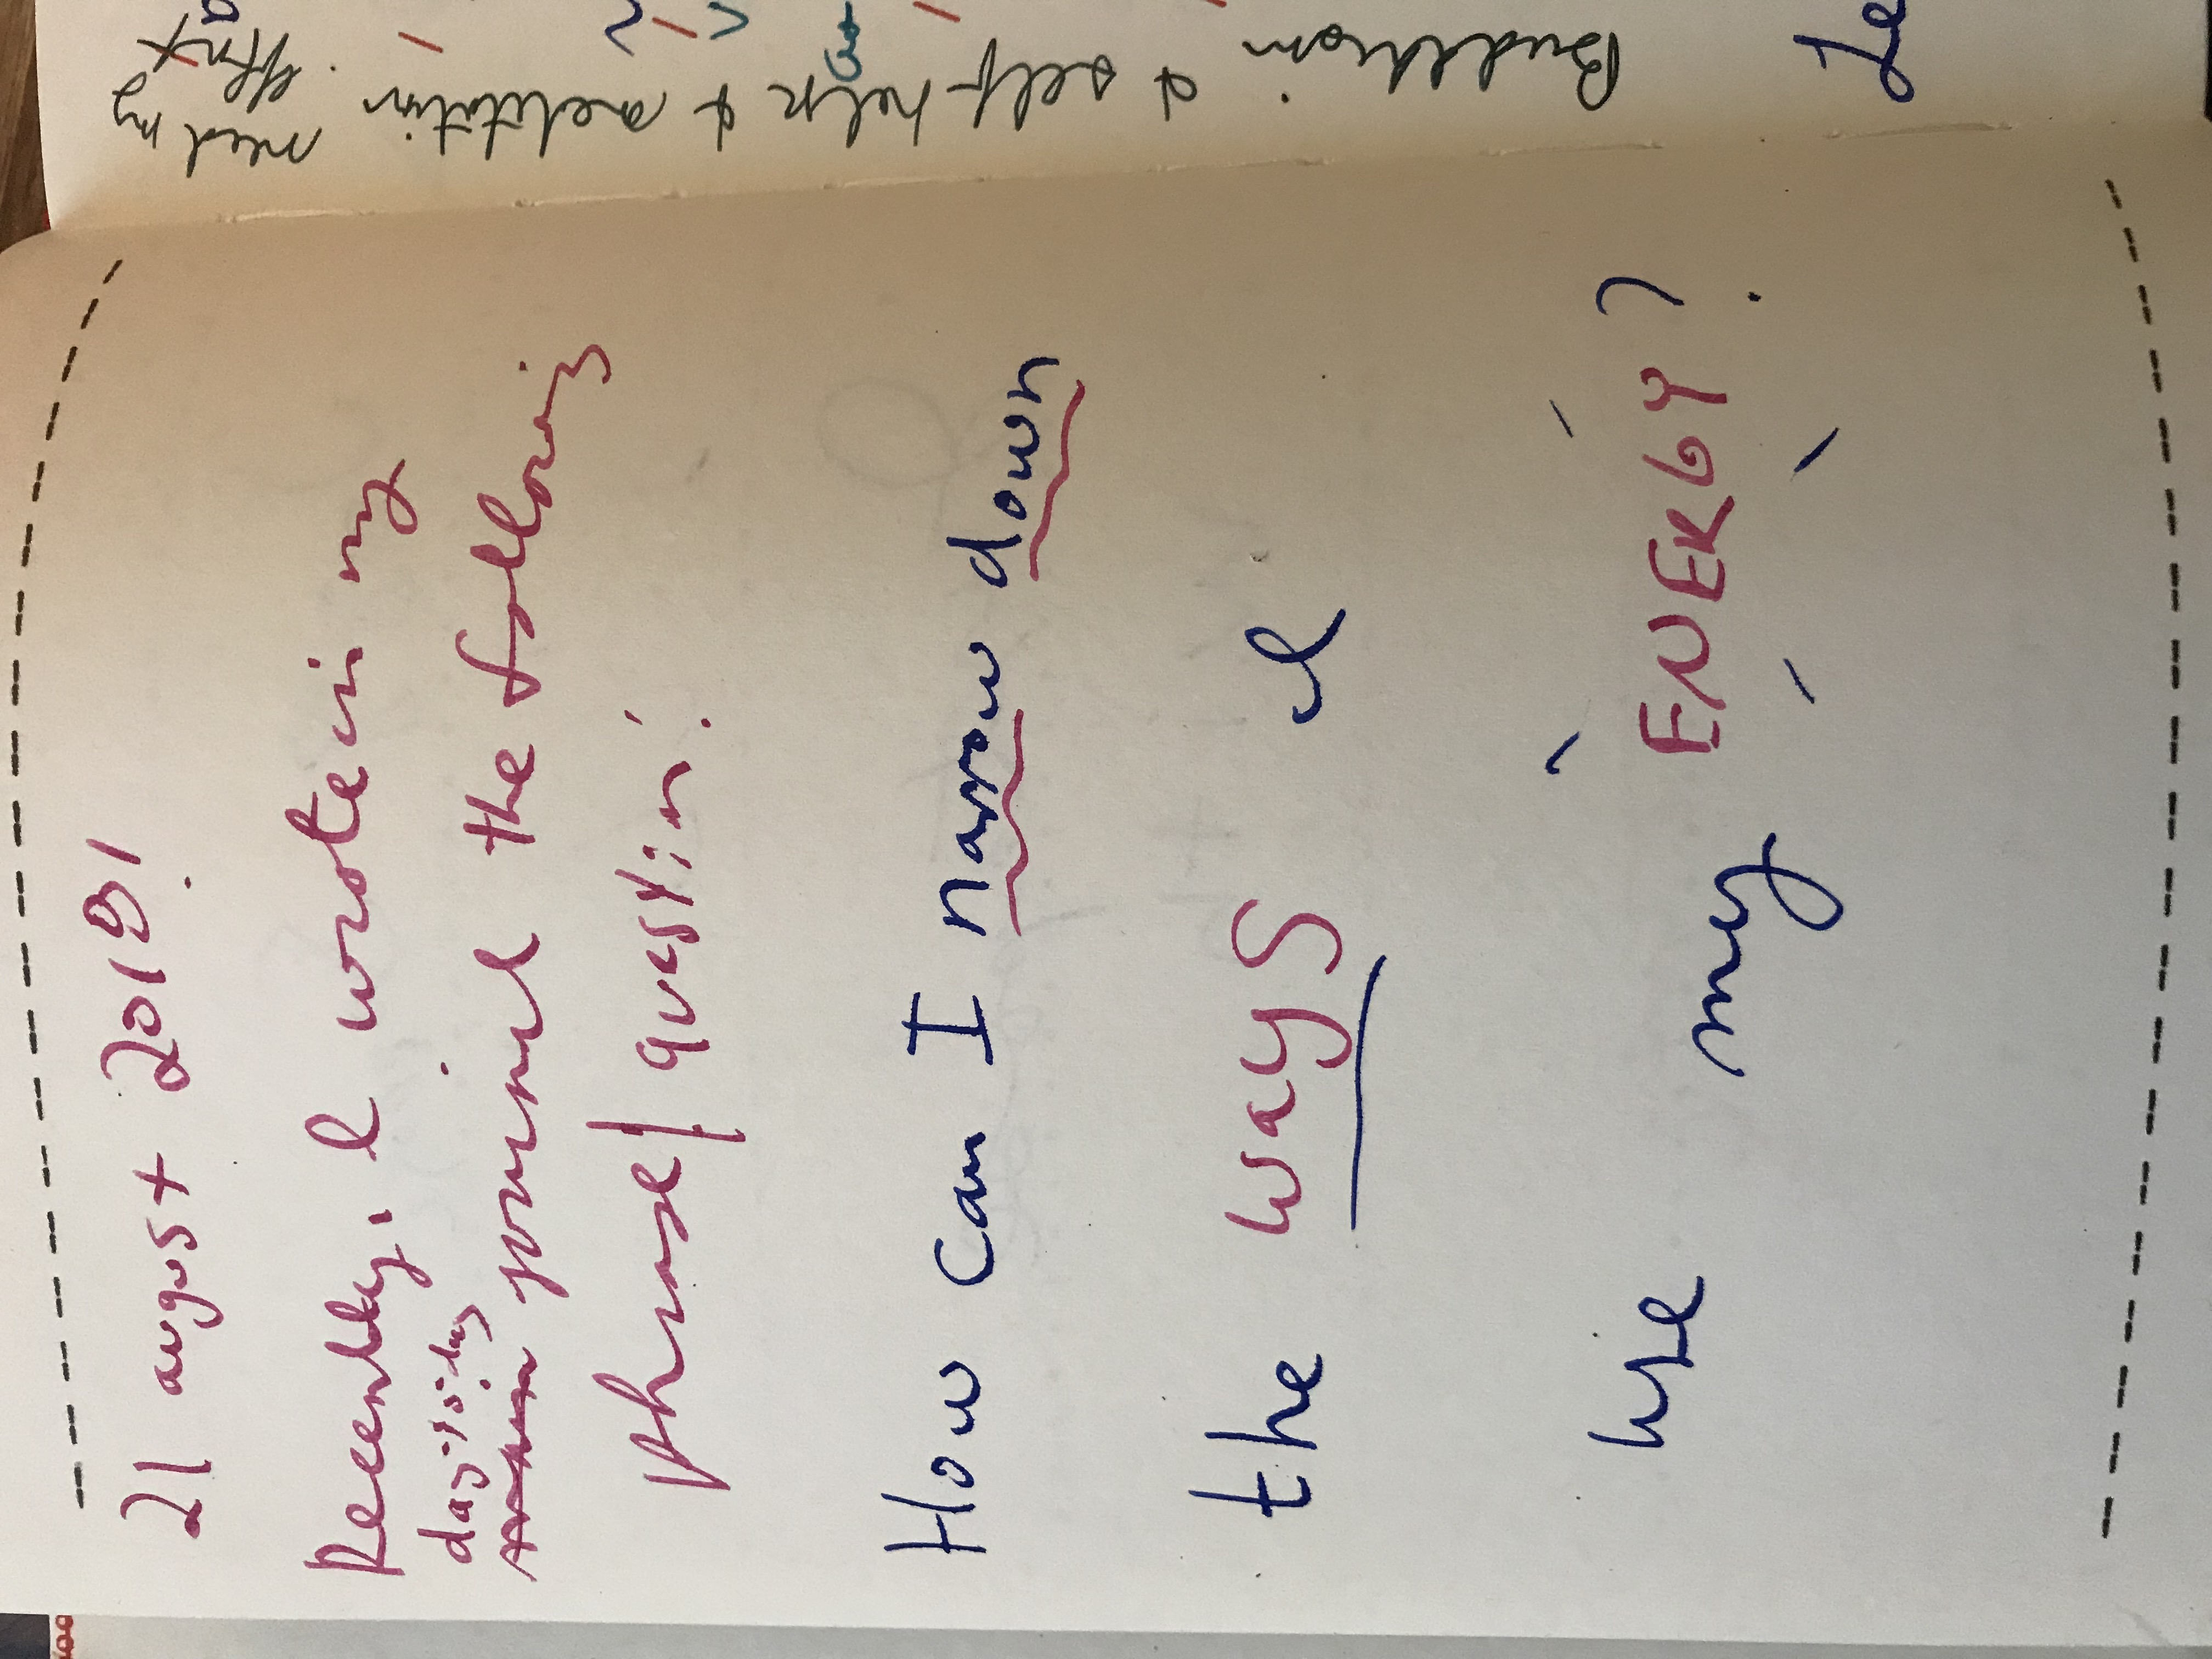 21 august 2019!
Recently, I wrote in my
day-to-day
main journal the following
phrase/question:
How can I narrow down
the ways I
use my ENERGY?
Buddhism & self help & meditation. need my
effort